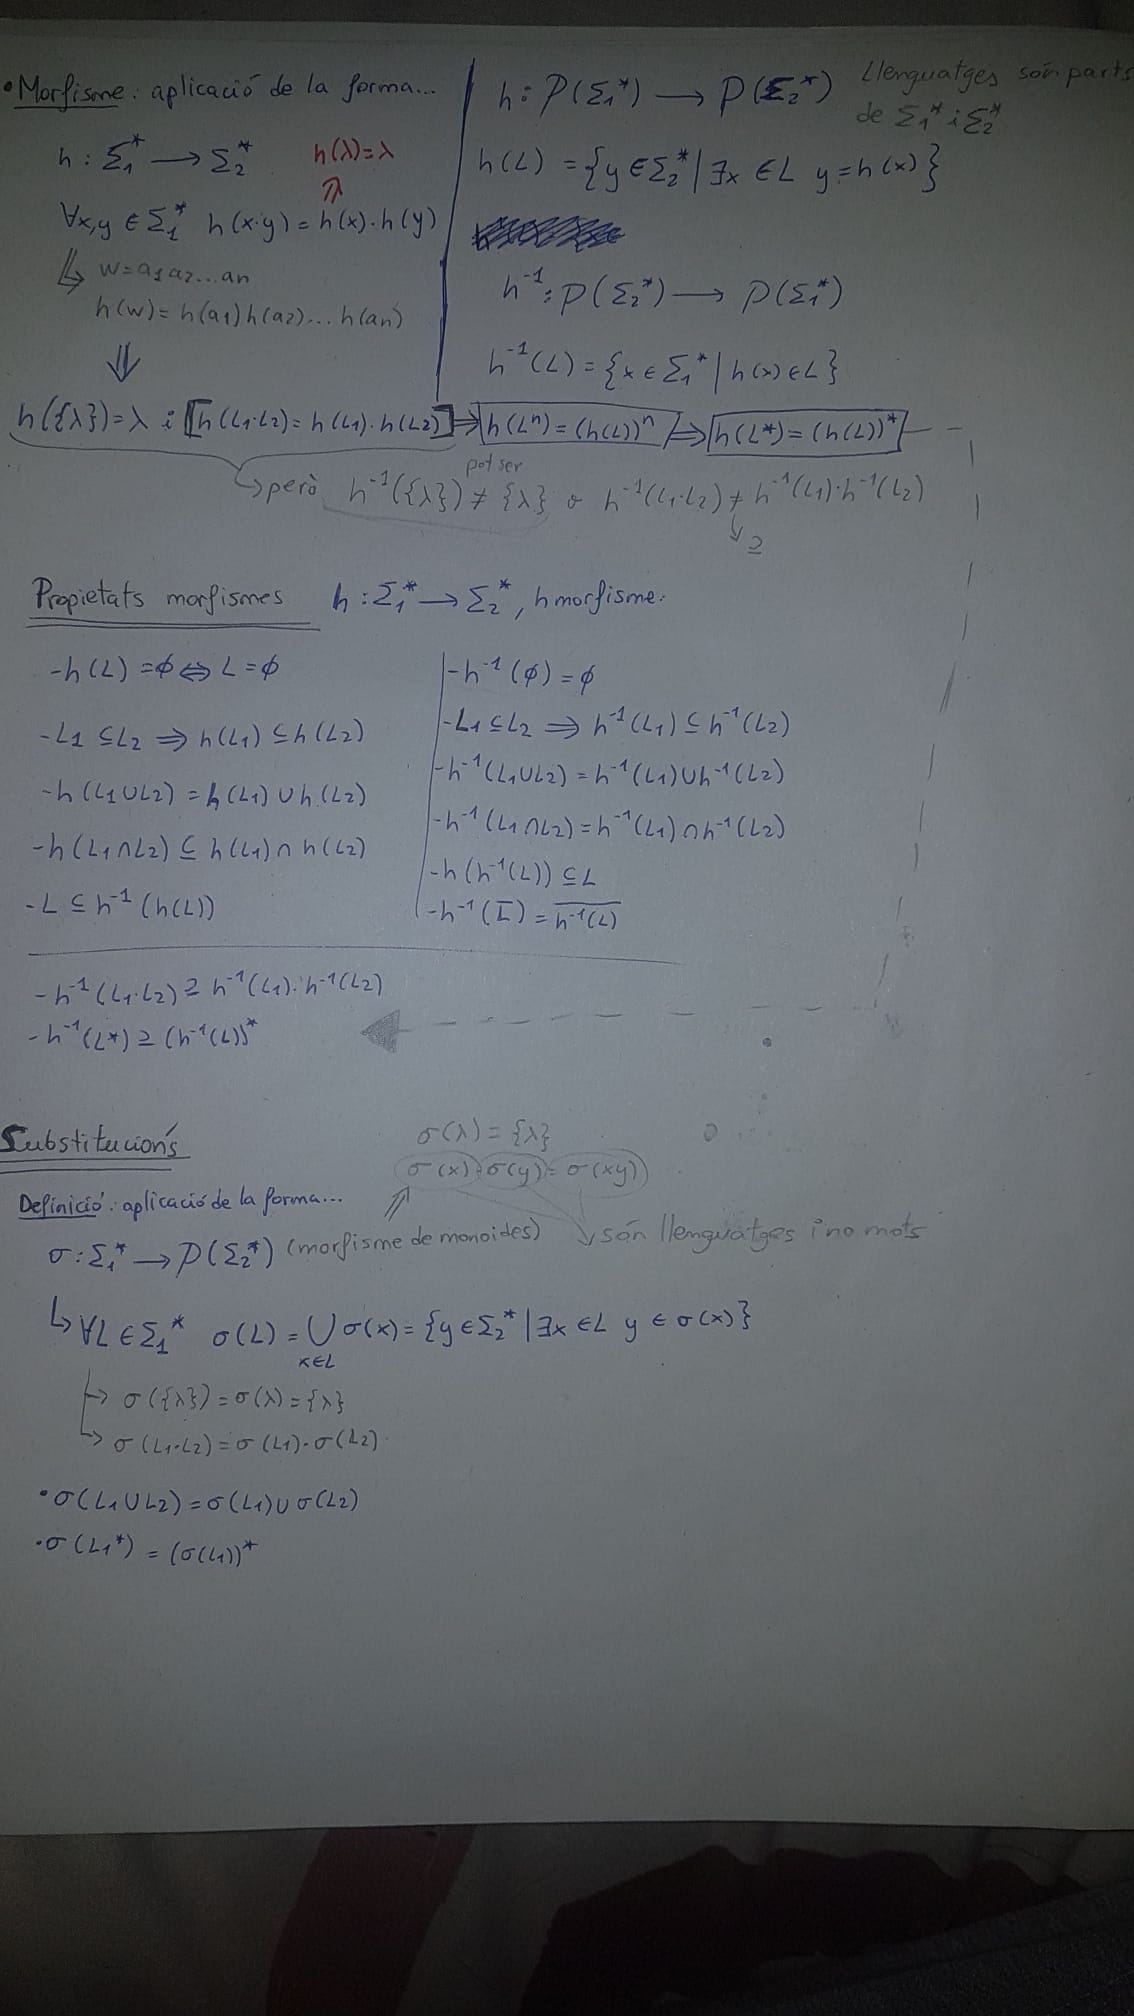 • Morfisme: aplicació de la forma...
h : Σ1* → Σ2*
h(λ)=λ
⇑
∀x,y ∈ Σ1* h(x·y) = h(x)·h(y)
↳ w=a1a2...an
h(w) = h(a1)h(a2)... h(an)
⇓
h : P(Σ1*) → P(Σ2*)
Llenguatges són parts
de Σ1* i Σ2*
h(L) = {y ∈ Σ2* | ∃x ∈ L y = h(x)}
h⁻¹ : P(Σ2*) → P(Σ1*)
h⁻¹(L) = {x ∈ Σ1* | h(x) ∈ L}
h({λ})=λ i [h(L1·L2) = h(L1)·h(L2)] ⇒ h(Lⁿ) = (h(L))ⁿ ⇒ h(L*) = (h(L))*
pot ser
↳ però h⁻¹({λ}) ≠ {λ} o h⁻¹(L1·L2) ≠ h⁻¹(L1)·h⁻¹(L2)
↳ ⊇
Propietats morfismes h : Σ1* → Σ2*, h morfisme.
-h(L) = ϕ ⇔ L = ϕ
-L1 ⊆ L2 ⇒ h(L1) ⊆ h(L2)
-h(L1∪L2) = h(L1) ∪ h(L2)
-h(L1∩L2) ⊆ h(L1) ∩ h(L2)
-L ⊆ h⁻¹(h(L))
-h⁻¹(ϕ) = ϕ
-L1 ⊆ L2 ⇒ h⁻¹(L1) ⊆ h⁻¹(L2)
-h⁻¹(L1∪L2) = h⁻¹(L1) ∪ h⁻¹(L2)
-h⁻¹(L1∩L2) = h⁻¹(L1) ∩ h⁻¹(L2)
-h(h⁻¹(L)) ⊆ L
-h⁻¹(L̅) = h⁻¹(L)̅
-h⁻¹(L1·L2) ⊇ h⁻¹(L1)·h⁻¹(L2)
-h⁻¹(L*) ⊇ (h⁻¹(L))*
Substitucions
σ(λ) = {λ}
σ(x)·σ(y) = σ(xy)
Definició: aplicació de la forma...
σ : Σ1* → P(Σ2*) (morfisme de monoides)
↘ són llenguatges i no mots
↳ ∀L ∈ Σ1* σ(L) = ⋃ σ(x) = {y ∈ Σ2* | ∃x ∈ L y ∈ σ(x)}
x∈L
↳ σ({λ}) = σ(λ) = {λ}
↳ σ(L1·L2) = σ(L1)·σ(L2)
• σ(L1∪L2) = σ(L1) ∪ σ(L2)
• σ(L1*) = (σ(L1))*